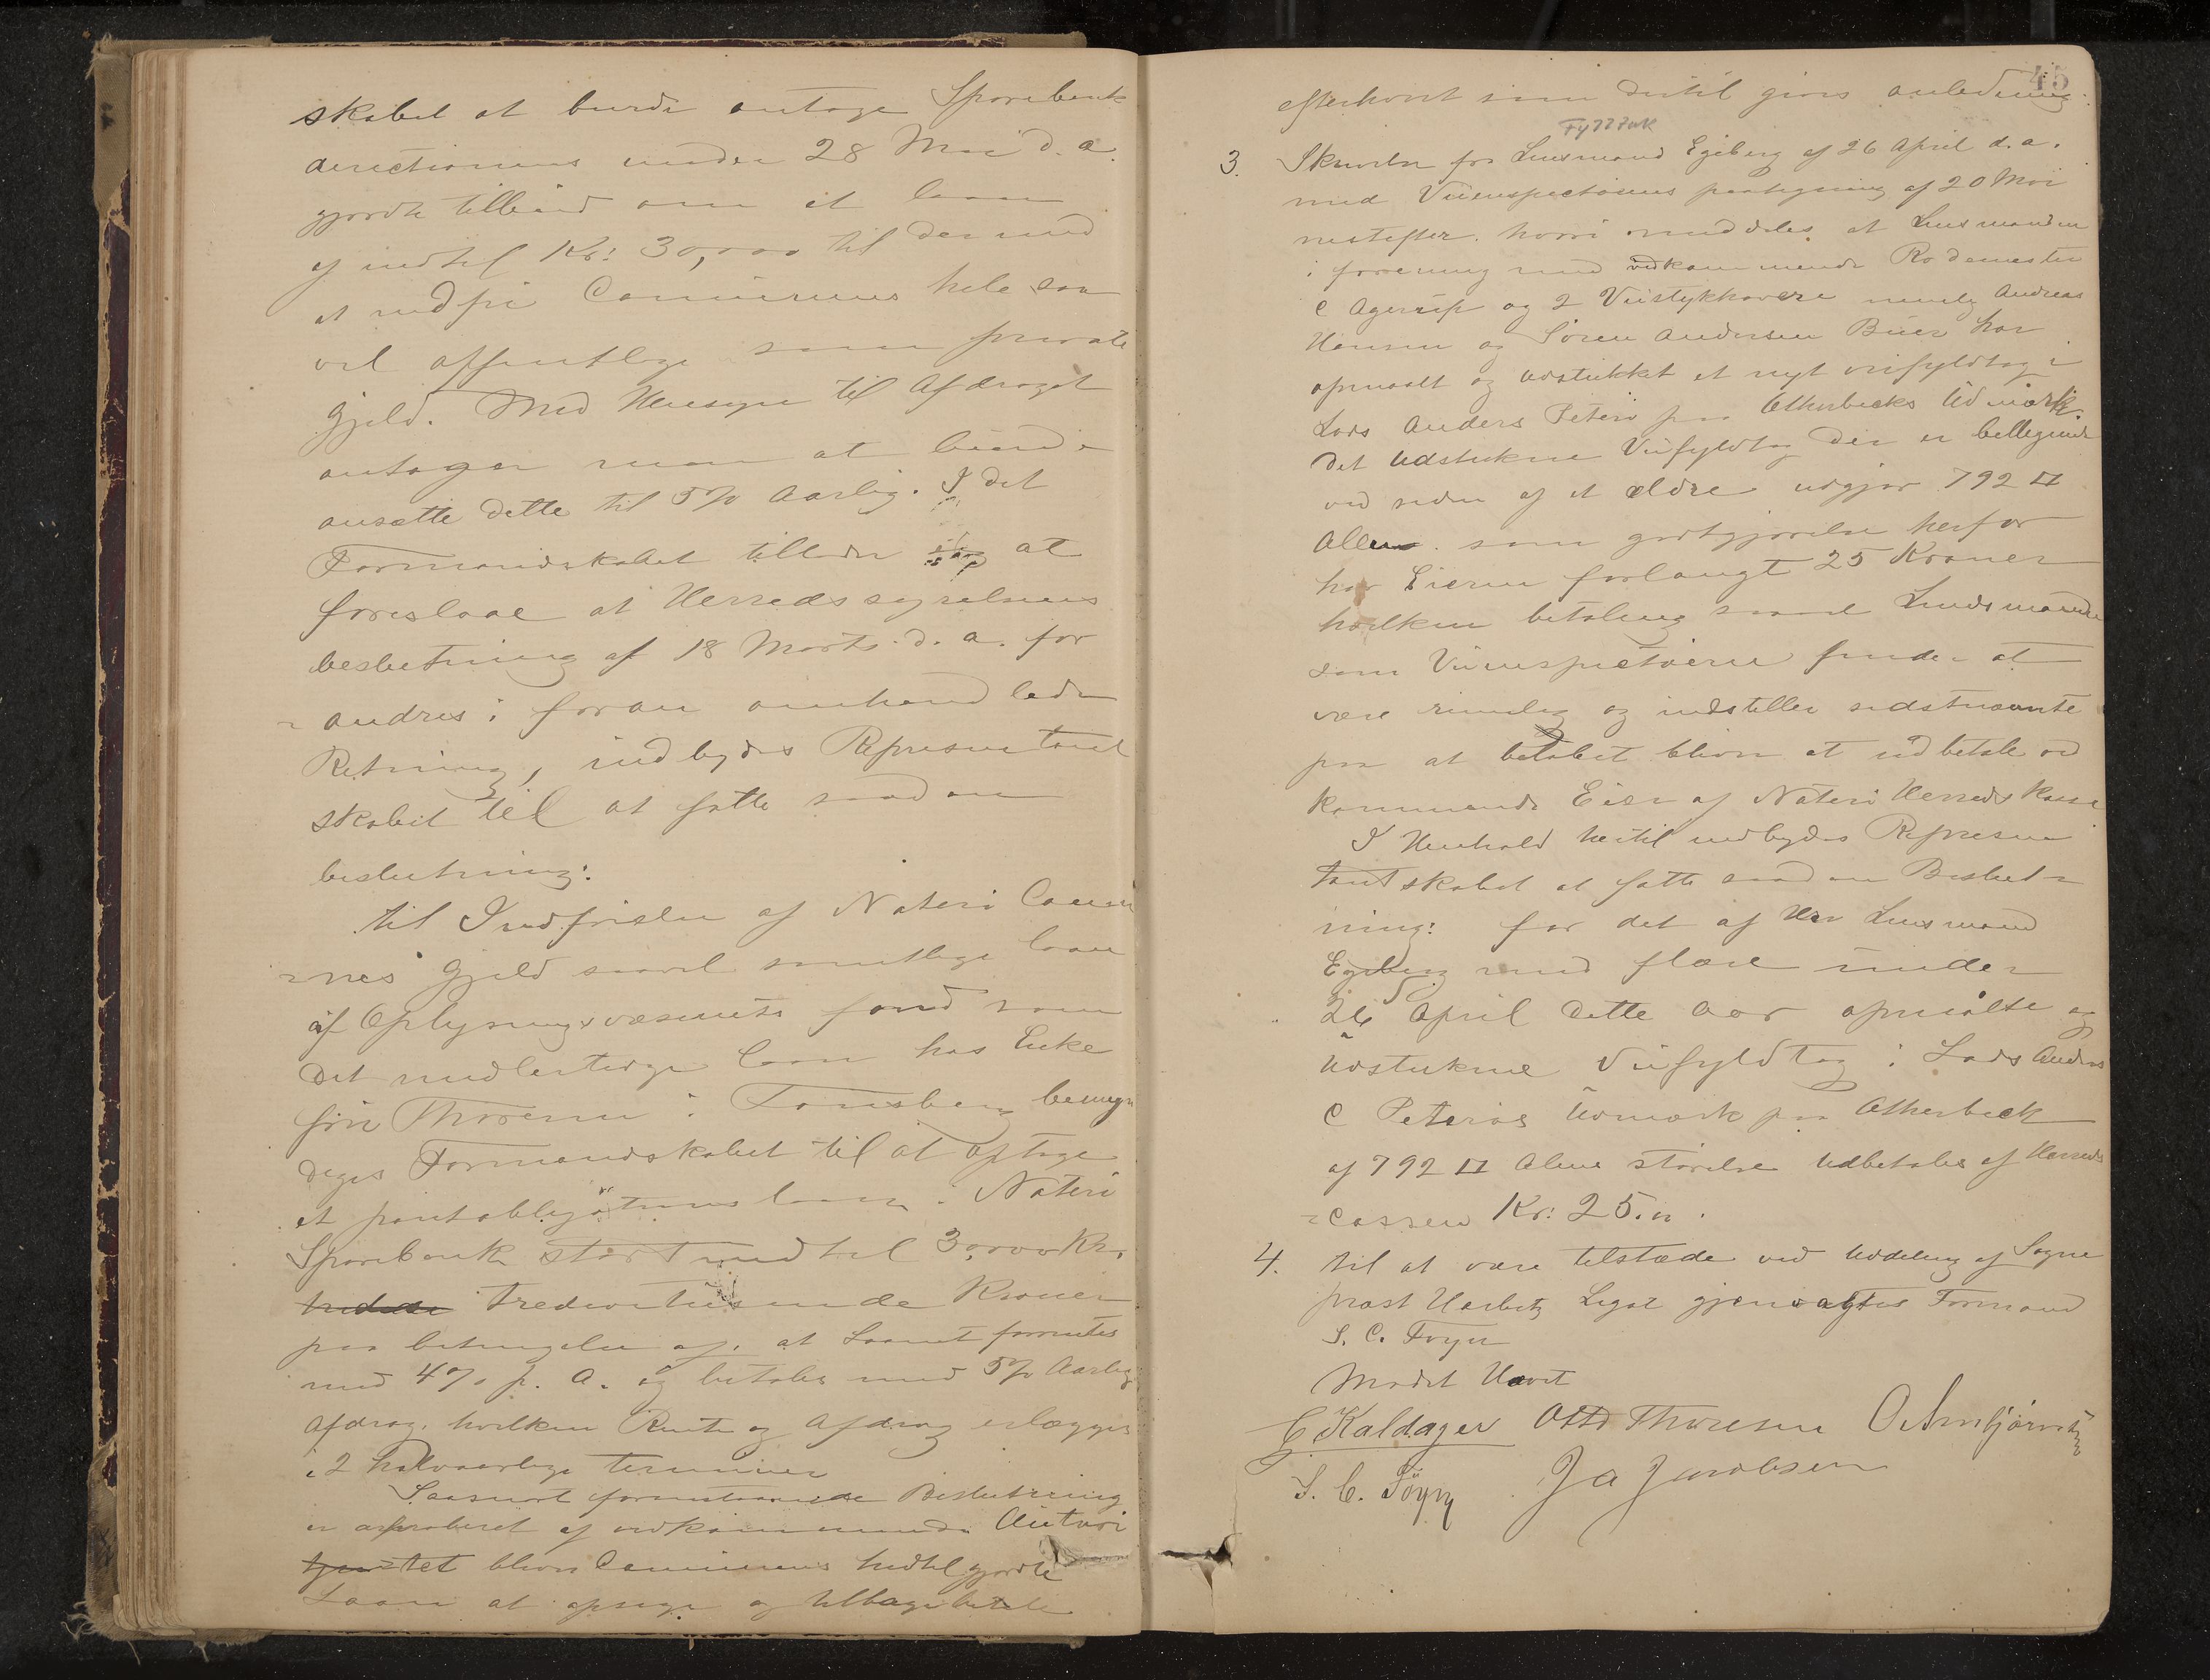 skabet at burde antage Sparebank
directionens under 28 Mai d. a.
gjorde tilbud om et laan
af indtil Kr: 30,000 til dermed
at indfri Communens hele saa
vel offentlige som private
Gjeld. Med Hensyn til Afdraget
antager man at burde
ansætte dette til 5% Aarlig. I det
Formandskabet tillader sig at
foreslaae at Herredsstyrelsens
beslutning af 18 Marts d. a. for
andres i foran omhandlede
Retning, indbydes Representant
skabet til at fatte saadan
beslutning:
til Indfrielse af Nøterø Commu
nes Gjeld saavel samtlige laan
af Oplysningsvæsenets fond som
det midlertidige laan hos Enke
fru Thoresen i Tønsberg bemyn
diges Formandskabet til at optage
et pantobligationslaan i Nøterø
Sparebank stort indtil 30,000 Kr.
tredivetusinde Kroner
paa betingelse af, at Laanet forrentes
med 4% p. A. og betales med 5% Aarlig
Afdrag, hvilken Rente og Afdrag erlægges
i 2 halvaarlige terminer
Saasnart foranstaaende Beslutning
er approberet af vedkommende Autori
tet blive Communens hidtil gjorte
Laan at opsige og tilbagebetale
45
efterhvert som dertil gives anledning.
Fylltak
3. Skrivelse fra Lensmand Egeberg af 26 April d. a.
med Veiinspectørens paategning af 20 Mai
nestefter. hvori meddeles, at Lensmanden
i forening med vedkommende Rodemester
C Agerup og 2 Veistykhavere nemlig Andreas
Hansen og Søren Andersen Buer har
opmaalt og udstukket et nyt veifyldtag i
Lods Anders Peterø paa Ølherbecks Udmark.
Det Udstukne Veifyldtag der er bellegende
ved siden af et ældre udgjør 792 □
Allen. som godtgjørelse herfor
har Eieren forlangt 25 Kroner
hvilken betaling saavel Lendsmanden
som Veiinspectøren finder at
være rimelig og indstiller sidstnævnte
paa at beløbet bliver at udbetale ved
kommende Eier af Nøterø Herredskasse
I Henhold hertil indbydes Represen
tantskabet at fatte saadan Beslut
ning: for det af Hr Lensmand
Egeberg med flere under
26 April dette Aar opmålte og
Udstukne Veifyldtag i Lods Anders
C Peterøs Udmark paa Ølherbeck
af 792 □ Alens størelse Udbetales af Herreds
cassen Kr: 25.00.
4. til at være tilstæde ved Uddeling af Sogne
præst Herbitz Legat gjenvalgtes Formand
S. C. Føyn
Mødet Hævet
C Kaldager Otto Thoresen O Arnbjørnsen
S. C. Föyn Ja Jacobsen